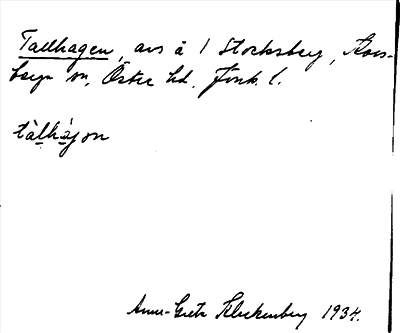 Tallhagen, avs å 1 Stocksberg, Kors-
berga sn, Östra hd. Jönk. l.
tàlhájon
Anna-Greta Kleckenberg 1934.